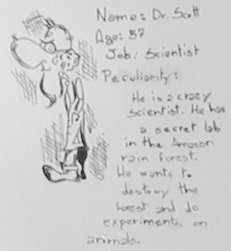 Name: Dr. Scott
Age: 57
Job: Scientist
Peculiarity:
He is a crazy
scientist. He has
a secret lab
in the Amazon
rain forest.
He wants to
destroy the
forest and do
experiments on
animals.